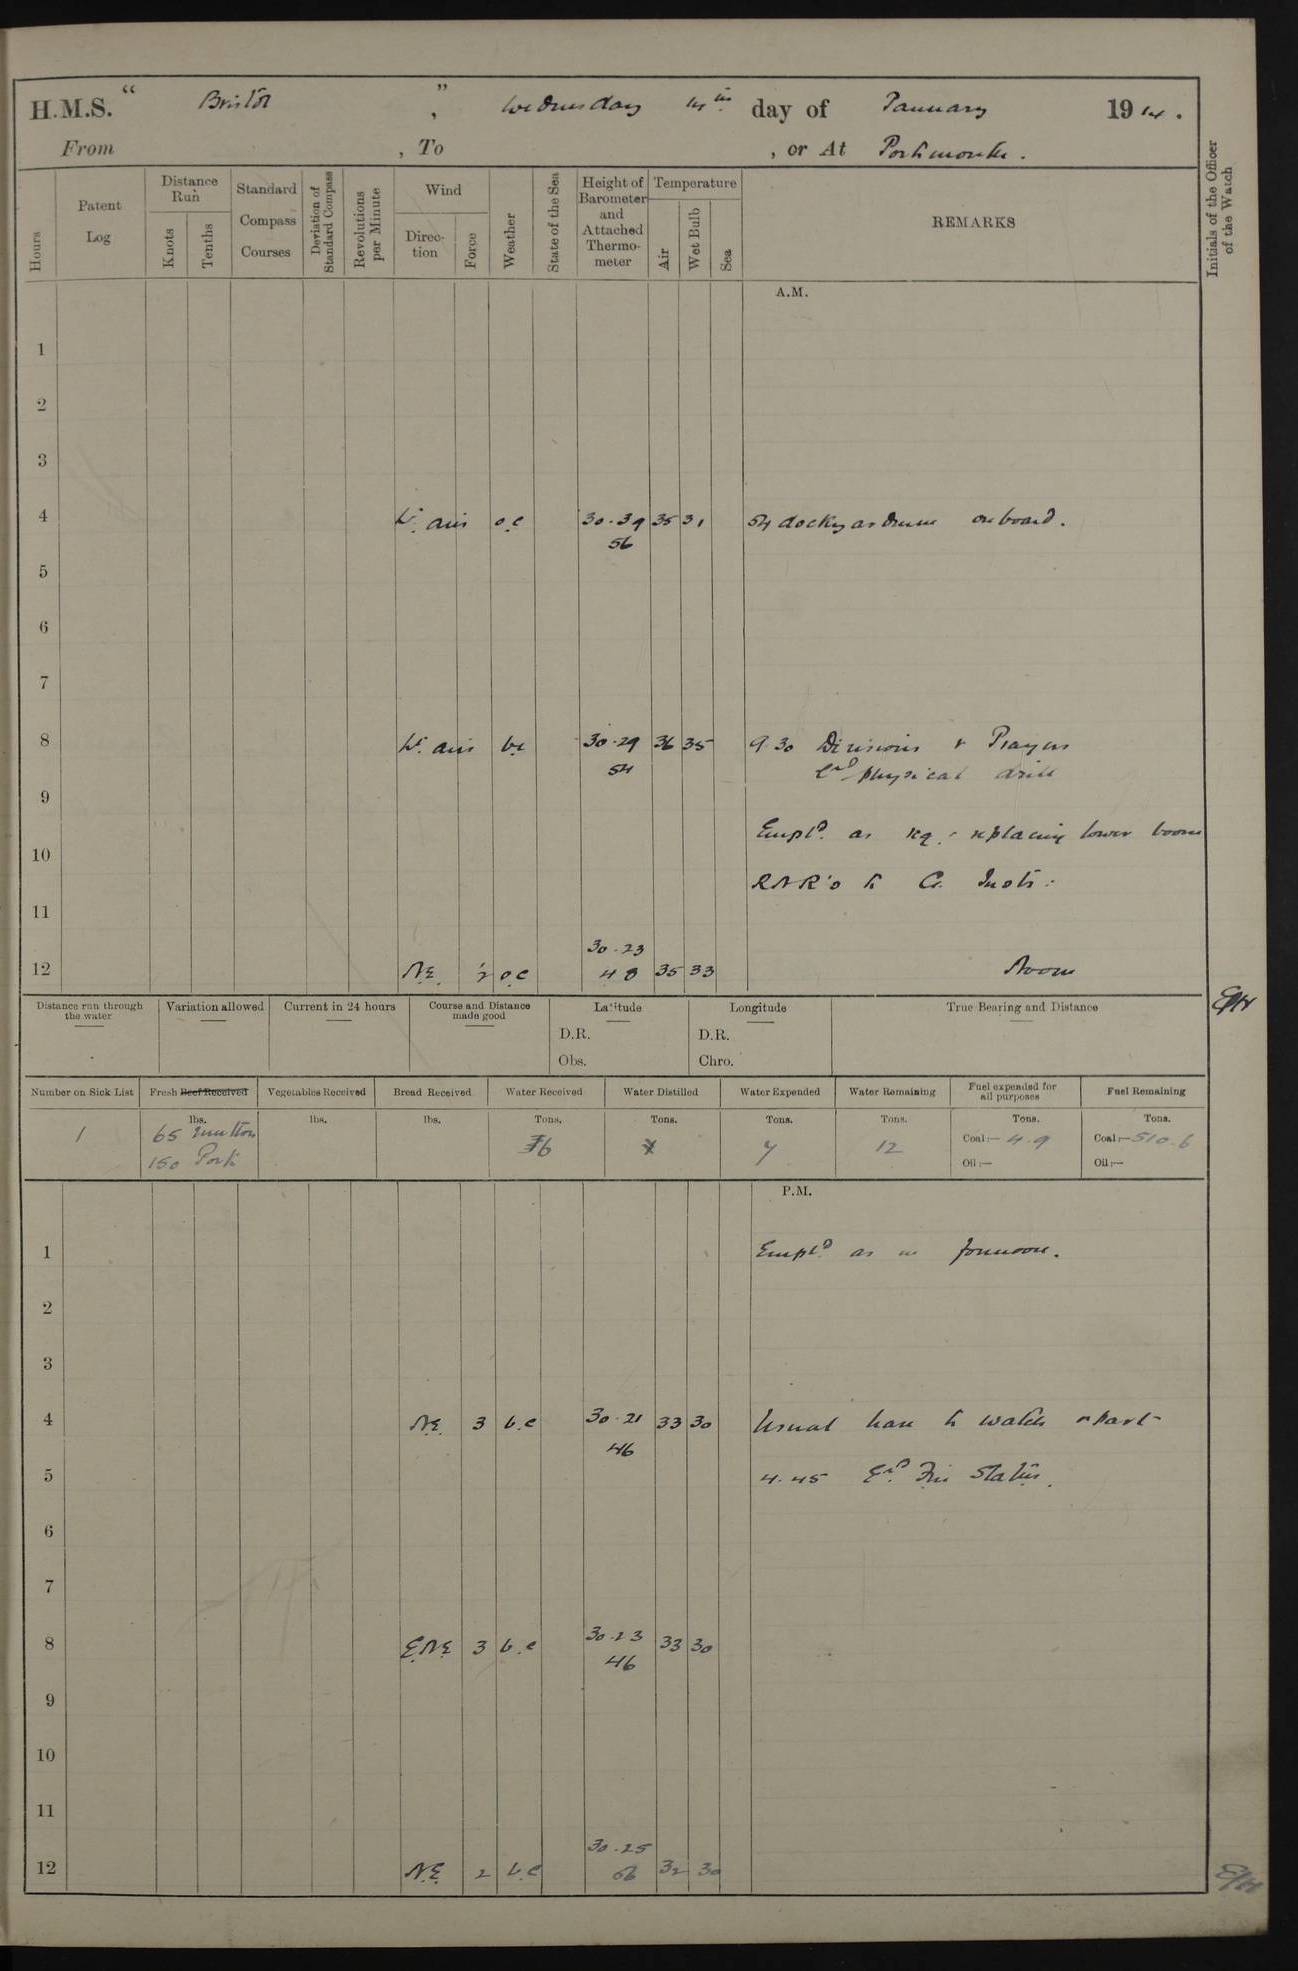 H.M.S. " Bristol ", Wednesday 14th day of January 1914.
From , To , or At Portsmouth.
Hours
Patent Log
Distance Run
Knots
Tenths
Standard Compass Courses
Deviation of Standard Compass
Revolutions per Minute
Wind
Direction
Force
Weather
State of the Sea
Height of Barometer and Attached Thermometer
Temperature
Air
Wet Bulb
Sea
REMARKS
Initials of the Officer of the Watch
A.M.
1
2
3
4 Lt. airs o.c 30.39 35 31 54 dockyardmen onboard.
56
5
6
7
8 Lt. airs bc 30.29 36 35 9.30 Divisions & Prayers
54 physical drill
9
Empld. as req. replacing lower boom
10
RNR's to G. Insts.
11
30.23
12 N.E. 1/2 o.c 48 35 33 Noon
Distance run through the water
Variation allowed
Current in 24 hours
Course and Distance made good
Latitude
Longitude
True Bearing and Distance
D.R. D.R.
Obs. Chro.
Number on Sick List
Fresh Beef Received
Vegetables Received
Bread Received
Water Received
Water Distilled
Water Expended
Water Remaining
Fuel expended for all purposes
Fuel Remaining
lbs. lbs. lbs. Tons. Tons. Tons. Tons. Tons. Tons.
1 65 mutton 6 7 12 Coal:— 4.9 Coal:— 510.6
150 Pork Oil:— Oil:—
P.M.
1 Empld. as in forenoon.
2
3
4 N.E. 3 b.c 30.21 33 30 Usual leave to watch & part
46
5 4.45 Exd. Fire Stations.
6
7
8 E.N.E. 3 b.c 30.23 33 30
46
9
10
11
30.25
12 N.E. 2 b.c 56 32 30